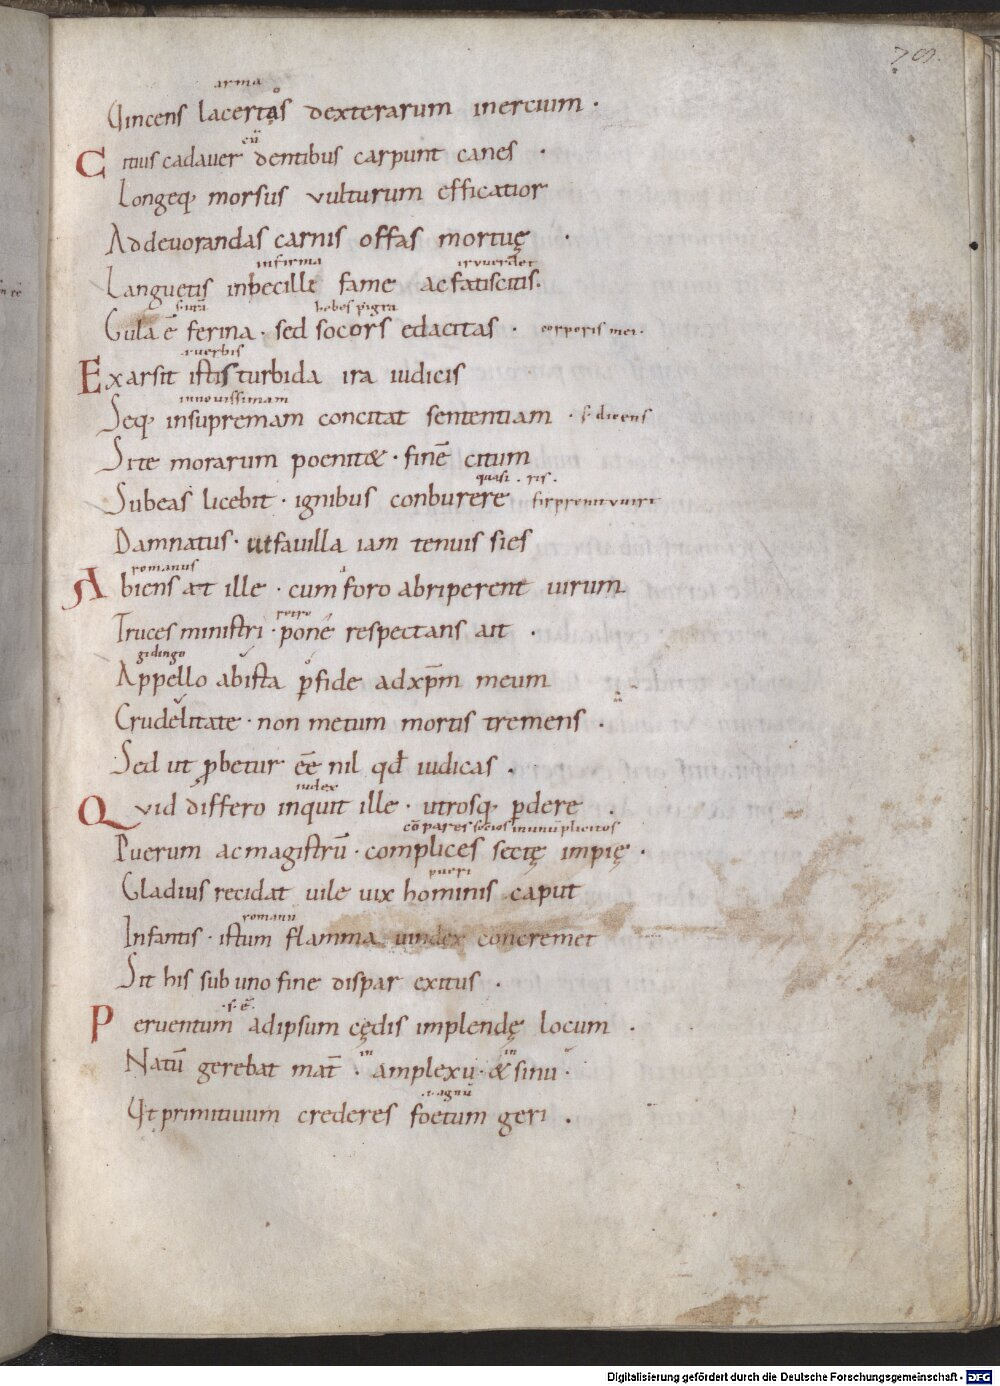 arma
Vincens lacertos dexterarum inertium ·
cū
Citius cadauer dentibus carpunt canes ·
Longeq; morsus vulturum efficatior
Ad deuorandas carnis offas mortuę ·
infirma
Languetis inbecille fame ac fatiscitis.
hebes pigra
Gula ē ferina · sed socors edacitas · corporis mei ·
Exarsit istis turbida ira iudicis
in nouissimam
Seq; insupremam concitat sententiam · s· dicens
Si te morarum poenit& · finē citum
quasi · ris ·
Subeas licebit · ignibus conburere
Damnatus · ut fauilla iam tenuis sies
romanus
Abiens at ille · cum foro abriperent uirum
retro
Truces ministri · pone respectans ait ·
Appello ab ista pfide ad xp̄m meum
Crudelitate · non metum mortis tremens ·
Sed ut pbetur eē nil qd iudicas ·
iudex
Quid differo inquit ille · utrosq; pdere ·
cōpares socios
Puerum ac magistrū · complices sectę impię ·
pueri
Gladius recidat uile uix hominis caput
romanū
Infantis · istum flamma uindex concremet
Sit his sub uno fine dispar exitus ·
· s· ē ·
Peruentum ad ipsum cędis implendę locum ·
in in
Natū gerebat mat̄ · amplexu · & sinu ·
Vt primitiuum crederes foetum geri ·
Digitalisierung gefördert durch die Deutsche Forschungsgemeinschaft - DFG